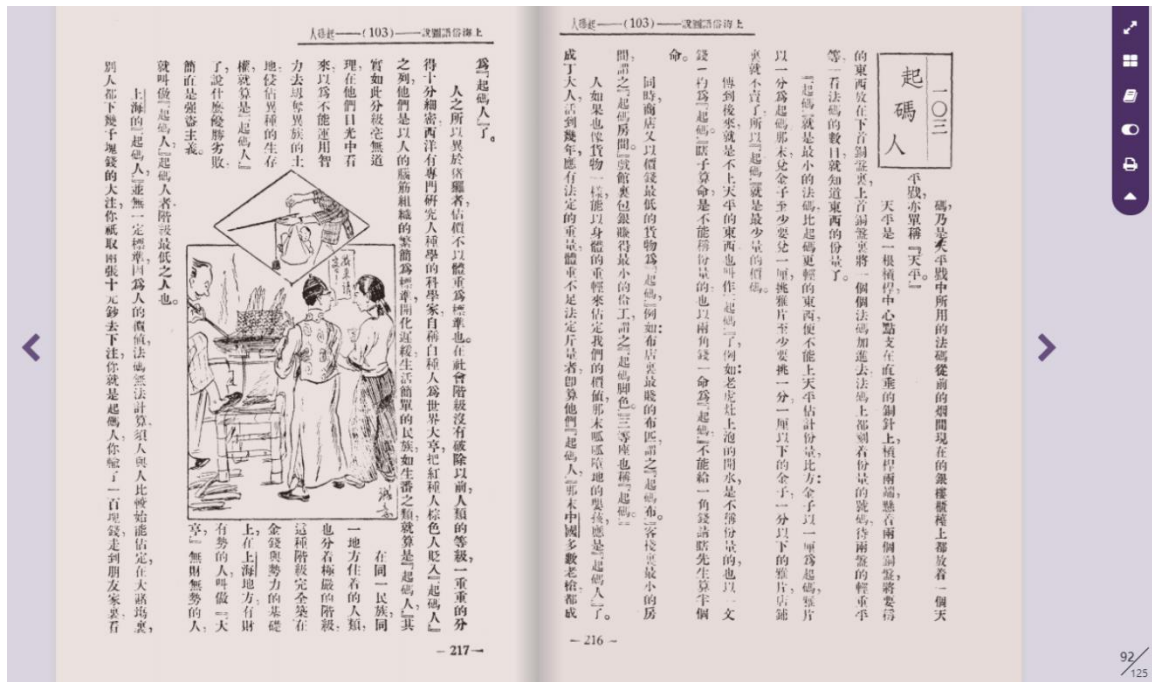 上海俗語圖說——(103)——起碼人
一〇三
起碼人
碼乃是天平戥中所用的法碼，從前的烟間現在的銀樓櫃檯上都放着一個天
平戥，亦單稱『天平。』
天平是一根槓桿，中心點支在直垂的銅針上，槓桿兩端，懸着兩個銅盤，將要稱
的東西放在下首銅盤裏，上首銅盤裏將一個個法碼加進去，法碼上都刻着份量的號碼，待兩盤的輕重平
等，一看法碼的數目，就知道東西的份量了。
『起碼』就是最小的法碼，比起碼更輕的東西，便不能上天平估計份量，比方：金子以一厘爲起碼，鴉片
以一分爲起碼，那末兌金子至少要兌一厘，挑鴉片至少要挑一分，一厘以下的金子，一分以下的鴉片，店鋪
裏就不賣了，所以『起碼』就是最少量的價碼。
傳到後來，就是不上天平的東西，也叫作『起碼』了，例如：老虎灶上泡的開水，是不稱份量的，也以一文
錢一杓爲『起碼。』瞎子算命，是不能稱份量的，也以兩角錢一命爲『起碼，』不能給一角錢請瞎先生算半個
命。
同時商店又以價錢最低的貨物爲『起碼，』例如：布店裏最賤的布匹，謂之『起碼布。』客棧裏最小的房
間，謂之『起碼房間。』戲館裏包銀賺得最小的伶工，謂之『起碼脚色。』三等座也稱『起碼。』
人如果也像貨物一樣，能以身體的重輕來估定我們的價值，那末呱呱墮地的嬰孩，應是『起碼人』了。
成丁大人，活到幾年，應有法定的重量，體重不足法定斤量者，卽算他們『起碼人，』那末中國多數老槍都成
—216—
上海俗語圖說——(103)——起碼人
爲『起碼人』了。
人之所以異於猪玀者，估價不以體重爲標準也。在社會階級沒有破除以前，人類的等級，一重重的分
得十分細密，西洋有專門研究人種學的科學家，自稱白種人爲世界大亨，把紅種人棕色人貶入『起碼人』
之列，他們是以人的腦筋組織的繁簡爲標準，開化遲緩，生活簡單的民族，如生番之類，就算是『起碼人，』其
實如此分級，毫無道
理，在他們目光中看
來，以爲不能運用智
力去侵奪異族的土
地，侵佔異種的生存
權，就算是『起碼人』
了，說什麼優勝劣敗，
簡直是強盜主義。
在同一民族，同
一地方住着的人類，
也分着極嚴的階級，
這種階級完全築在
金錢與勢力的基礎
上，在上海地方，有財
有勢的人，叫做『大
亨，』無財無勢的人，
就叫做『起碼人，』起碼人者，階級最低之人也。
上海的『起碼人，』並無一定標準，因爲人的價值，法碼無法計算，須人與人比較，始能估定，在大賭塲裏，
別人都下幾千塊錢的大注，你祇取兩張十元鈔去下注，你就是起碼人，你輸了一百塊錢，走到朋友家裏看
—217—
92/125